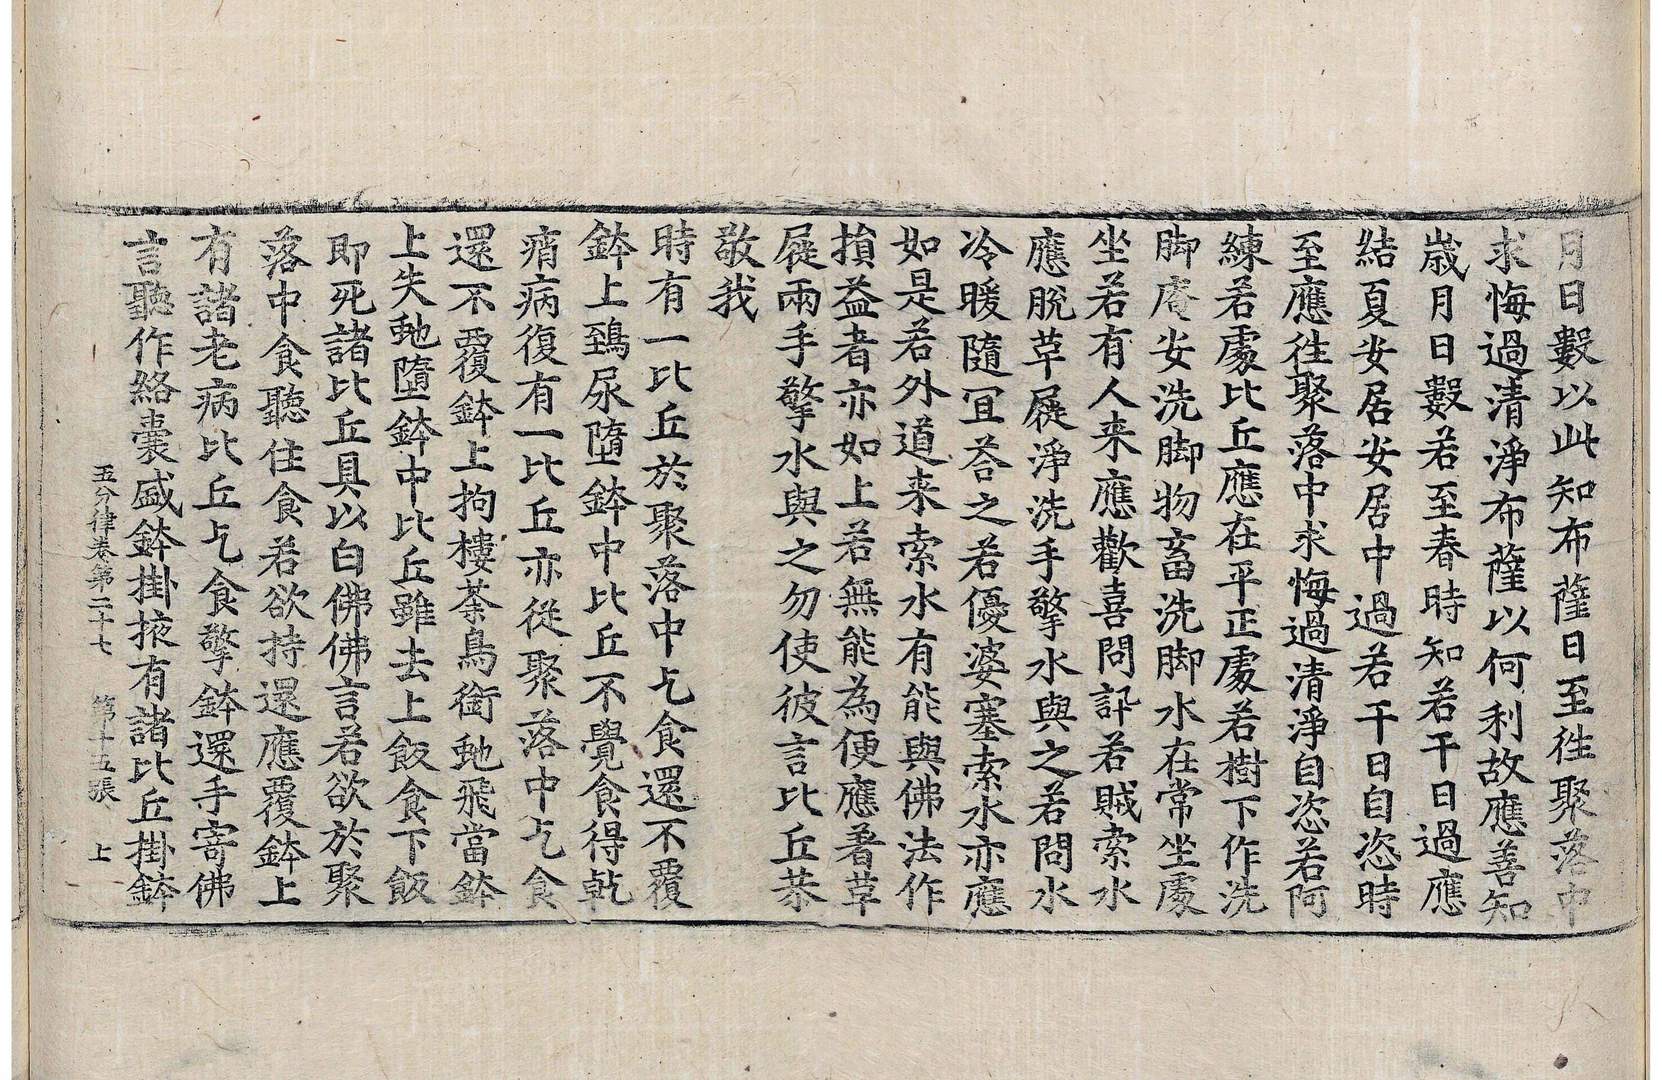 月日數以此知布薩日至徃聚落中
求悔過清淨布薩以何利故應善知
歲月日數若至春時知若干日過應
結夏安居安居中過若干日自恣時
至應徃聚落中求悔過清淨自恣若阿
練若處比丘應在平正處若樹下作洗
脚庵安洗脚物畜洗脚水在常坐處
坐若有人来應歡喜問訊若賊索水
應脫草屣淨洗手擎水與之若問水
冷暖隨冝荅之若優婆塞索水亦應
如是若外道来索水有能與佛法作
損益者亦如上若無能為便應著草
屣兩手擎水與之勿使彼言比丘恭
敬我
時有一比丘於聚落中乞食還不覆
鉢上鵄尿墮鉢中比丘不覺食得乹
痟病復有一比丘亦從聚落中乞食
還不覆鉢上拘樓荼鳥銜虵飛當鉢
上失虵墮鉢中比丘雖去上飯食下飯
即死諸比丘具以白佛佛言若欲於聚
落中食聽住食若欲持還應覆鉢上
有諸老病比丘乞食擎鉢還手寄佛
言聽作絡囊盛鉢掛掖有諸比丘掛鉢
五分律卷第二十七 第十五張 上